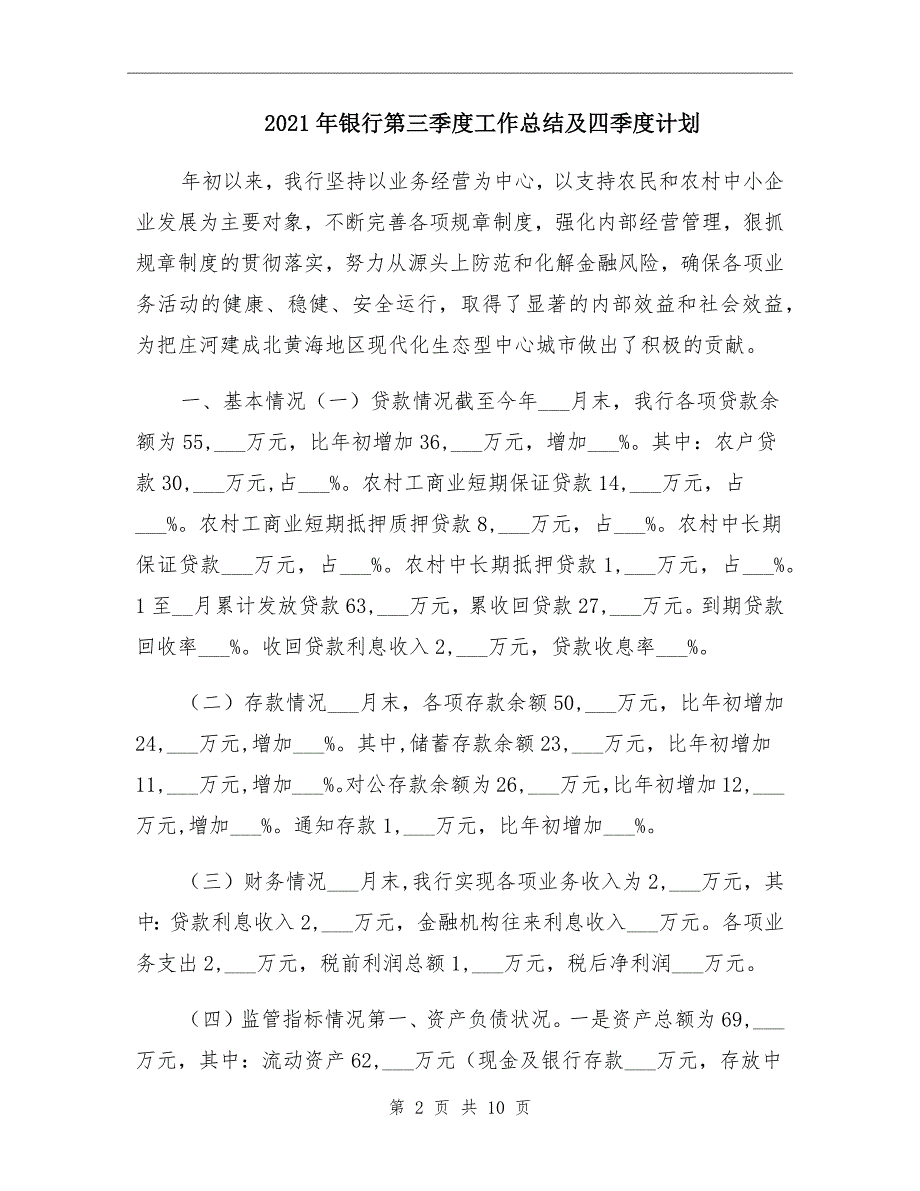 2021 年银行第三季度工作总结及四季度计划
年初以来，我行坚持以业务经营为中心，以支持农民和农村中小企
业发展为主要对象，不断完善各项规章制度，强化内部经营管理，狠抓
规章制度的贯彻落实，努力从源头上防范和化解金融风险，确保各项业
务活动的健康、稳健、安全运行，取得了显著的内部效益和社会效益，
为把庄河建成北黄海地区现代化生态型中心城市做出了积极的贡献。
一、基本情况（一）贷款情况截至今年___月末，我行各项贷款余
额为 55,___万元，比年初增加 36,___万元，增加___%。其中：农户贷
款 30,___万元,占___%。农村工商业短期保证贷款 14,___万元，占
___%。农村工商业短期抵押质押贷款 8,___万元，占___%。农村中长期
保证贷款___万元，占___%。农村中长期抵押贷款 1,___万元，占___%。
1 至__月累计发放贷款 63,___万元，累收回贷款 27,___万元。到期贷款
回收率___%。收回贷款利息收入 2,___万元，贷款收息率___%。
（二）存款情况___月末，各项存款余额 50,___万元，比年初增加
24,___万元,增加___%。其中,储蓄存款余额 23,___万元，比年初增加
11,___万元,增加___%。对公存款余额为 26,___万元,比年初增加 12,___
万元,增加___%。通知存款 1,___万元，比年初增加___%。
（三）财务情况___月末,我行实现各项业务收入为 2,___万元，其
中：贷款利息收入 2,___万元，金融机构往来利息收入___万元。各项业
务支出 2,___万元，税前利润总额 1,___万元，税后净利润___万元。
（四）监管指标情况第一、资产负债状况。一是资产总额为 69,___
万元，其中：流动资产 62,___万元（现金及银行存款___万元，存放中
第 2 页 共 10 页